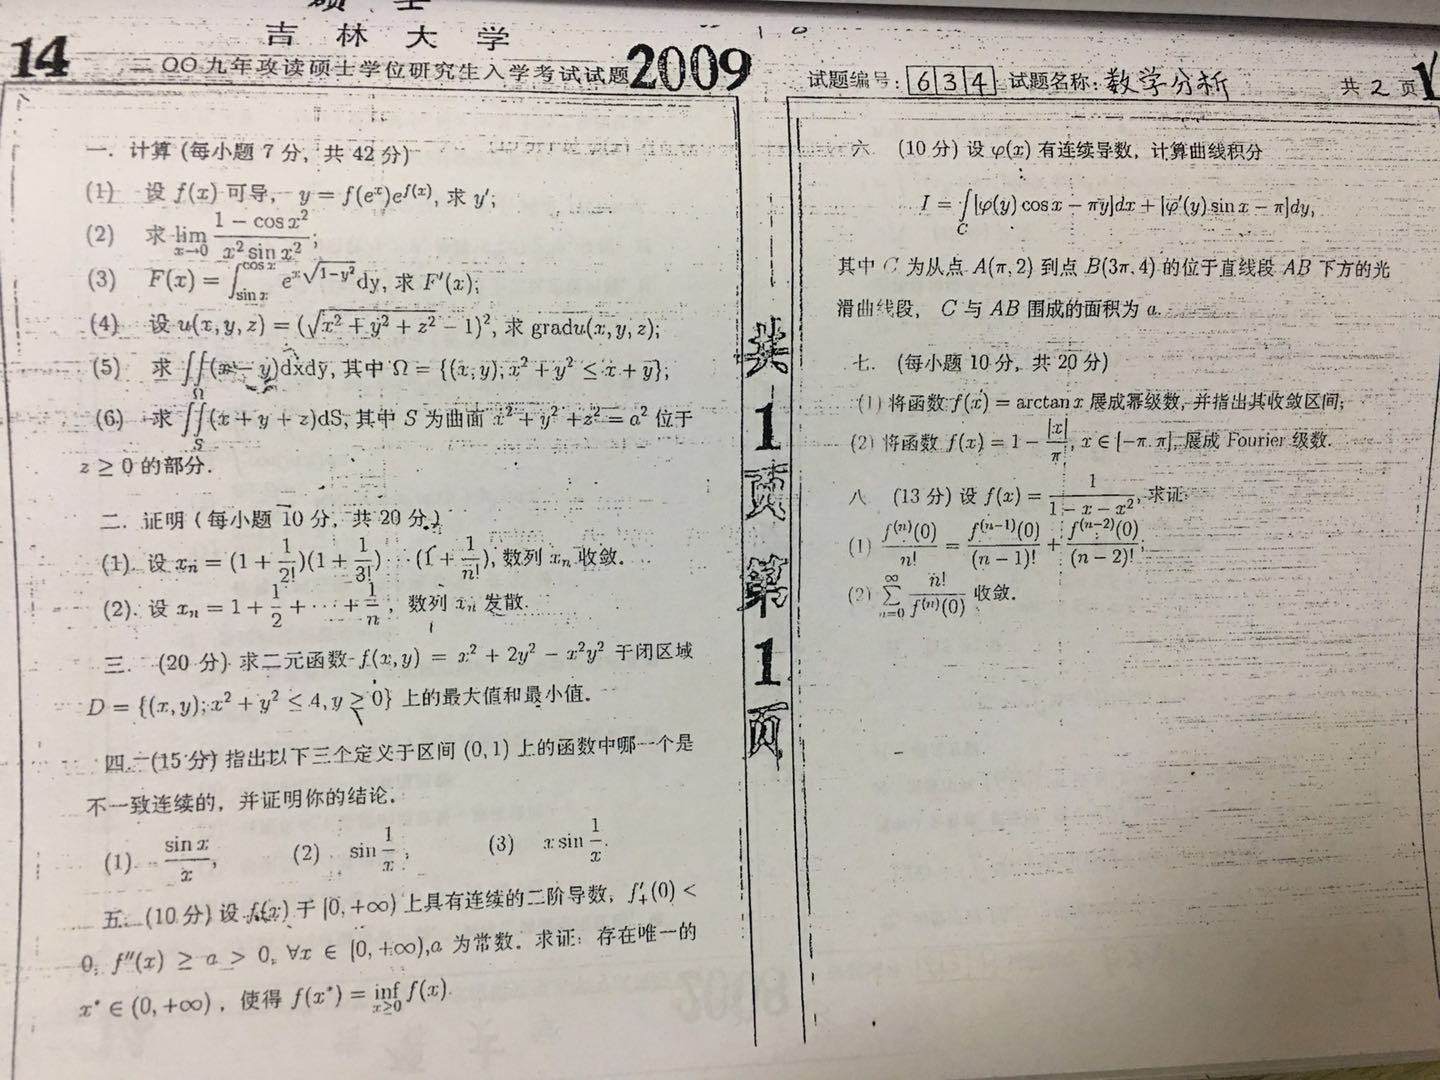 硕 士
吉 林 大 学
14 二〇〇九年攻读硕士学位研究生入学考试试题 2009
试题编号: 6 3 4 试题名称: 数学分析 共 2 页
一. 计算 (每小题 7 分, 共 42 分)
(1) 设 f(x) 可导, y = f(e^x)e^{f(x)}, 求 y′;
(2) 求 lim_{x→0} (1 − cos x²)/(x² sin x²);
(3) F(x) = ∫_{sin x}^{cos x} e^{x√(1−y²)}dy, 求 F′(x);
(4) 设 u(x, y, z) = (√(x² + y² + z²) − 1)², 求 gradu(x, y, z);
(5) 求 ∬_Ω (x − y)dxdy, 其中 Ω = {(x, y); x² + y² ≤ x + y};
(6) 求 ∬_S (x + y + z)dS, 其中 S 为曲面 x² + y² + z² = a² 位于
z ≥ 0 的部分.
二. 证明 (每小题 10 分, 共 20 分)
(1). 设 xₙ = (1 + 1/2!)(1 + 1/3!) ⋯ (1 + 1/n!), 数列 xₙ 收敛.
(2). 设 xₙ = 1 + 1/2 + ⋯ + 1/n, 数列 xₙ 发散.
三. (20 分) 求二元函数 f(x, y) = x² + 2y² − x²y² 于闭区域
D = {(x, y); x² + y² ≤ 4, y ≥ 0} 上的最大值和最小值.
四. (15 分) 指出以下三个定义于区间 (0, 1) 上的函数中哪一个是
不一致连续的, 并证明你的结论.
(1). sin x/x, (2) sin 1/x; (3) x sin 1/x.
五. (10 分) 设 f(x) 于 [0, +∞) 上具有连续的二阶导数, f′₊(0) <
0, f″(x) ≥ a > 0, ∀x ∈ [0, +∞), a 为常数. 求证: 存在唯一的
x* ∈ (0, +∞), 使得 f(x*) = inf_{x≥0} f(x).
共 1 页 第 1 页
六. (10 分) 设 φ(x) 有连续导数, 计算曲线积分
I = ∫_C [φ(y) cos x − πy]dx + [φ′(y) sin x − π]dy,
其中 C 为从点 A(π, 2) 到点 B(3π, 4) 的位于直线段 AB 下方的光
滑曲线段, C 与 AB 围成的面积为 a.
七. (每小题 10 分, 共 20 分)
(1) 将函数 f(x) = arctan x 展成幂级数, 并指出其收敛区间;
(2) 将函数 f(x) = 1 − |x|/π, x ∈ [−π, π], 展成 Fourier 级数.
八 (13 分) 设 f(x) = 1/(1 − x − x²), 求证:
(1) f^{(n)}(0)/n! = f^{(n−1)}(0)/(n − 1)! + f^{(n−2)}(0)/(n − 2)!;
(2) ∑_{n=0}^{∞} n!/f^{(n)}(0) 收敛.